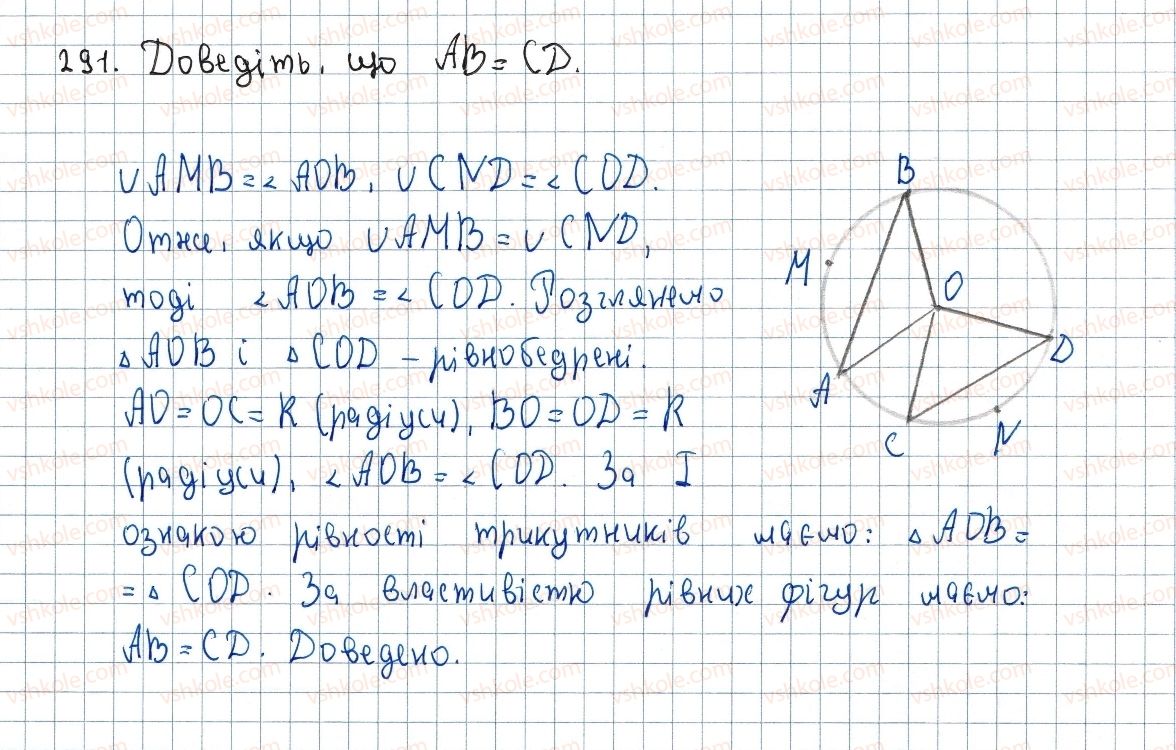 291. Доведіть, що AB = CD.
∪AMB = ∠AOB, ∪CND = ∠COD.
Отже, якщо ∪AMB = ∪CND,
тоді ∠AOB = ∠COD. Розглянемо
△AOB і △COD – рівнобедрені.
AO = OC = R (радіуси), BO = OD = R
(радіуси), ∠AOB = ∠COD. За I
ознакою рівності трикутників маємо: △AOB =
= △COD. За властивістю рівних фігур маємо:
AB = CD. Доведено.
B
M
O
D
A
C
N
vshkole.com